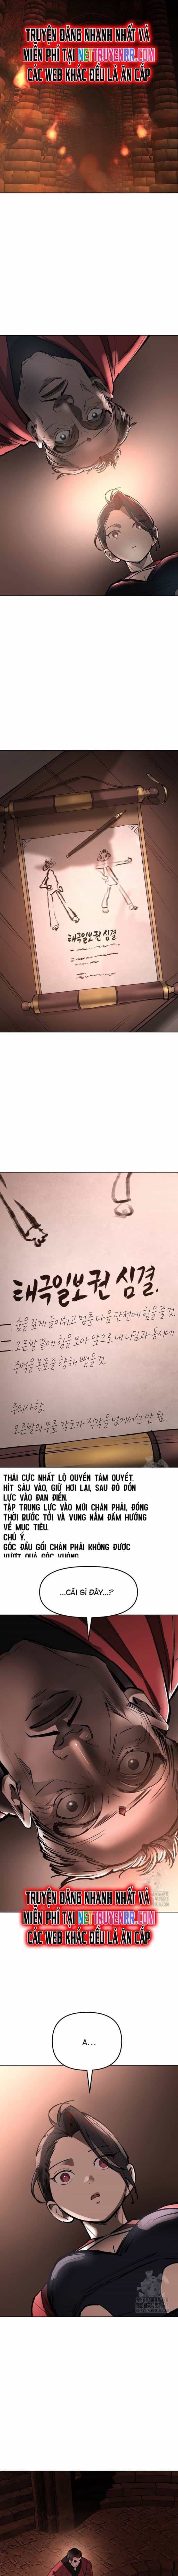 TRUYỆN ĐĂNG NHANH NHẤT VÀ
MIỄN PHÍ TẠI NETTRUYENRR.COM
CÁC WEB KHÁC ĐỀU LÀ ĂN CẮP
태극일보권 심결.
태극일보권 심결.
숨을 깊게 들이쉬고 멈춘 다음 단전에 힘을 줄 것.
오른발 끝에 힘을 모아 앞으로 내 디딤과 동시에
주먹을 목표를 향해 뻗을 것.
주의사항.
오른발의 무릎 각도가 직각을 넘어서선 안 됨.
THÁI CỰC NHẤT LỘ QUYỀN TÂM QUYẾT.
HÍT SÂU VÀO, GIỮ HƠI LẠI, SAU ĐÓ DỒN
LỰC VÀO ĐAN ĐIỀN.
TẬP TRUNG LỰC VÀO MŨI CHÂN PHẢI, ĐỒNG
THỜI BƯỚC TỚI VÀ VUNG NẮM ĐẤM HƯỚNG
VỀ MỤC TIÊU.
CHÚ Ý.
GÓC ĐẦU GỐI CHÂN PHẢI KHÔNG ĐƯỢC
VƯỢT QUÁ GÓC VUÔNG.
...CÁI GÌ ĐÂY...?
TRUYỆN ĐĂNG NHANH NHẤT VÀ
MIỄN PHÍ TẠI NETTRUYENRR.COM
CÁC WEB KHÁC ĐỀU LÀ ĂN CẮP
A...